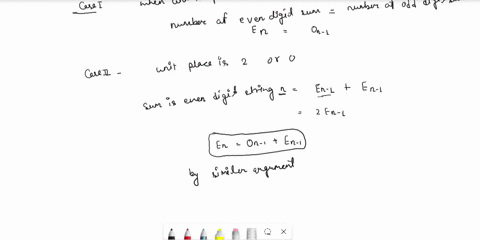 Case I when
number of even digid sum = number of odd digit
En = On-1
Case II - unit place is 2 or 0
sum is even digit string n = En-1 + En-1
= 2 En-1
En = On-1 + En-1
by similer argument